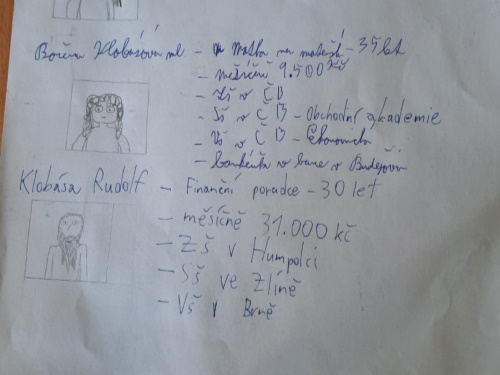 Božena Klobásová ml - Matka na mateřské - 35 let
- měsíčně 9.500 Kč
- ZŠ v ČB
- SŠ v ČB - Obchodní akademie
- VŠ v ČB - Ekonomická
- bankéřka v bance v Budějovicích
Klobása Rudolf - Finanční poradce - 30 let
- měsíčně 31.000 kč
- ZŠ v Humpolci
- SŠ ve Zlíně
- VŠ v Brně